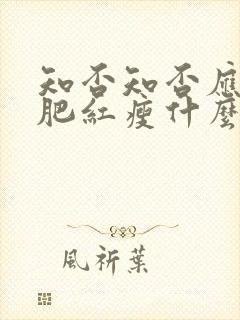 知否知否應
肥紅瘦什麼
風祈葉